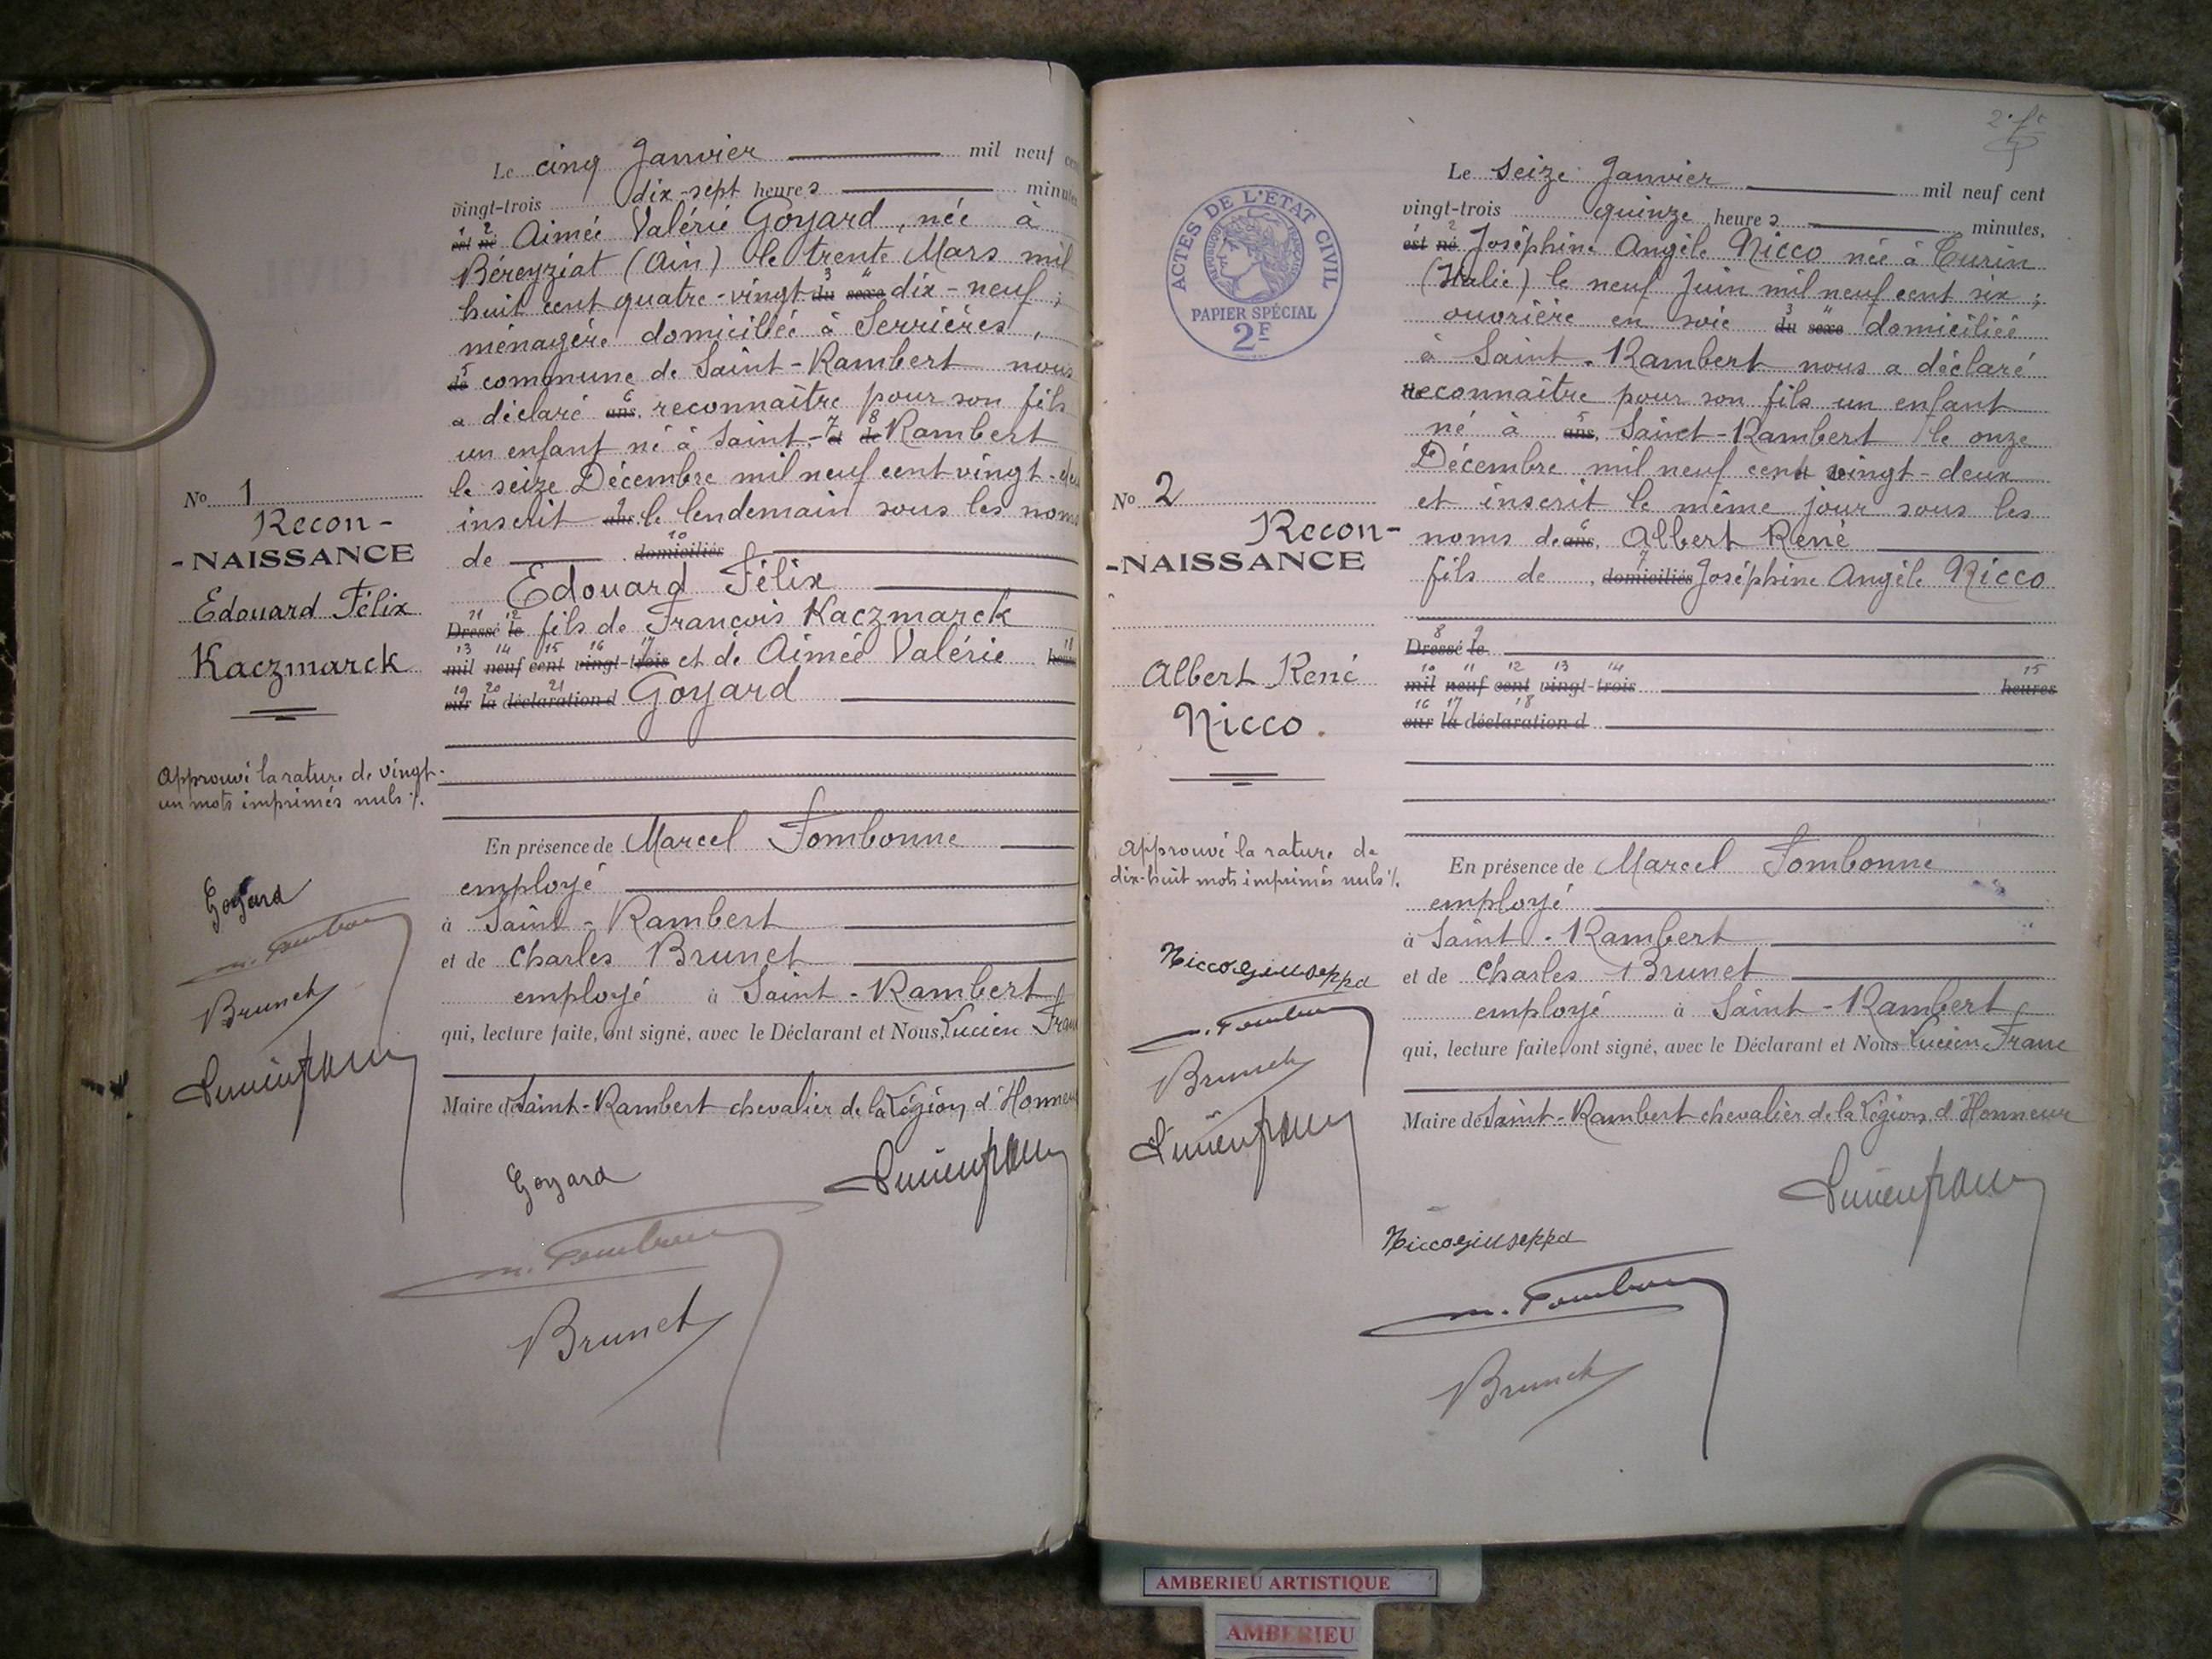 Le cinq Janvier mil neuf cent
vingt-trois dix-sept heures minutes
1 2
est né Aimée Valérie Goyard, née à
Béreyziat (Ain) le trente Mars mil
3 4
huit cent quatre-vingt du sexe dix-neuf ;
ménagère domiciliée à Serrières,
5
de commune de Saint-Rambert nous
6
a déclaré ans, reconnaître pour son fils
7 8
un enfant né à Saint- et de Rambert
le seize Décembre mil neuf cent vingt-deux
9
inscrit ans, le lendemain sous les noms
10
de domiciliés
Edouard Félix
11 12
Dressé le fils de François Kaczmarck
13 14 15 16 17 18
mil neuf cent vingt-trois et de Aimée Valérie heures
19 20 21
sur la déclaration d Goyard
No 1
Recon-
-NAISSANCE
Edouard Félix
Kaczmarck
Approuvé la rature de vingt-
un mots imprimés nuls %.
Goyard
m. Fombonne
Brunet
Lucien franc
En présence de Marcel Fombonne
employé
à Saint-Rambert
et de Charles Brunet
employé à Saint-Rambert
qui, lecture faite, ont signé, avec le Déclarant et Nous, Lucien Franc
Maire de Saint-Rambert chevalier de la Légion d'Honneur
Goyard
Lucien franc
m. Fombonne
Brunet
ACTES DE L'ÉTAT CIVIL
RÉPUBLIQUE FRANÇAISE
PAPIER SPÉCIAL
2F
Le seize Janvier mil neuf cent
vingt-trois quinze heures minutes,
1 2
est né Joséphine Angèle Nicco née à Turin
(Italie) le neuf Juin mil neuf cent six ;
3 4
ouvrière en soie du sexe domiciliée
à Saint-Rambert nous a déclaré
reconnaître pour son fils un enfant
5
né à ans, Saint-Rambert le onze
Décembre mil neuf cent vingt-deux
et inscrit le même jour sous les
6
noms de ans, Albert René
7
fils de , domiciliés Joséphine Angèle Nicco
8 9
Dressé le
10 11 12 13 14 15
mil neuf cent vingt-trois heures
16 17 18
sur la déclaration d
No 2
Recon-
-NAISSANCE
Albert René
Nicco.
Approuvé la rature de
dix-huit mots imprimés nuls %.
Nicco Giuseppa
m. Fombonne
Brunet
Lucien franc
En présence de Marcel Fombonne
employé
à Saint-Rambert
et de Charles Brunet
employé à Saint-Rambert
qui, lecture faite, ont signé, avec le Déclarant et Nous Lucien Franc
Maire de Saint-Rambert chevalier de la Légion d'Honneur
Lucien franc
Nicco Giuseppa
m. Fombonne
Brunet
AMBERIEU ARTISTIQUE
AMBERIEU